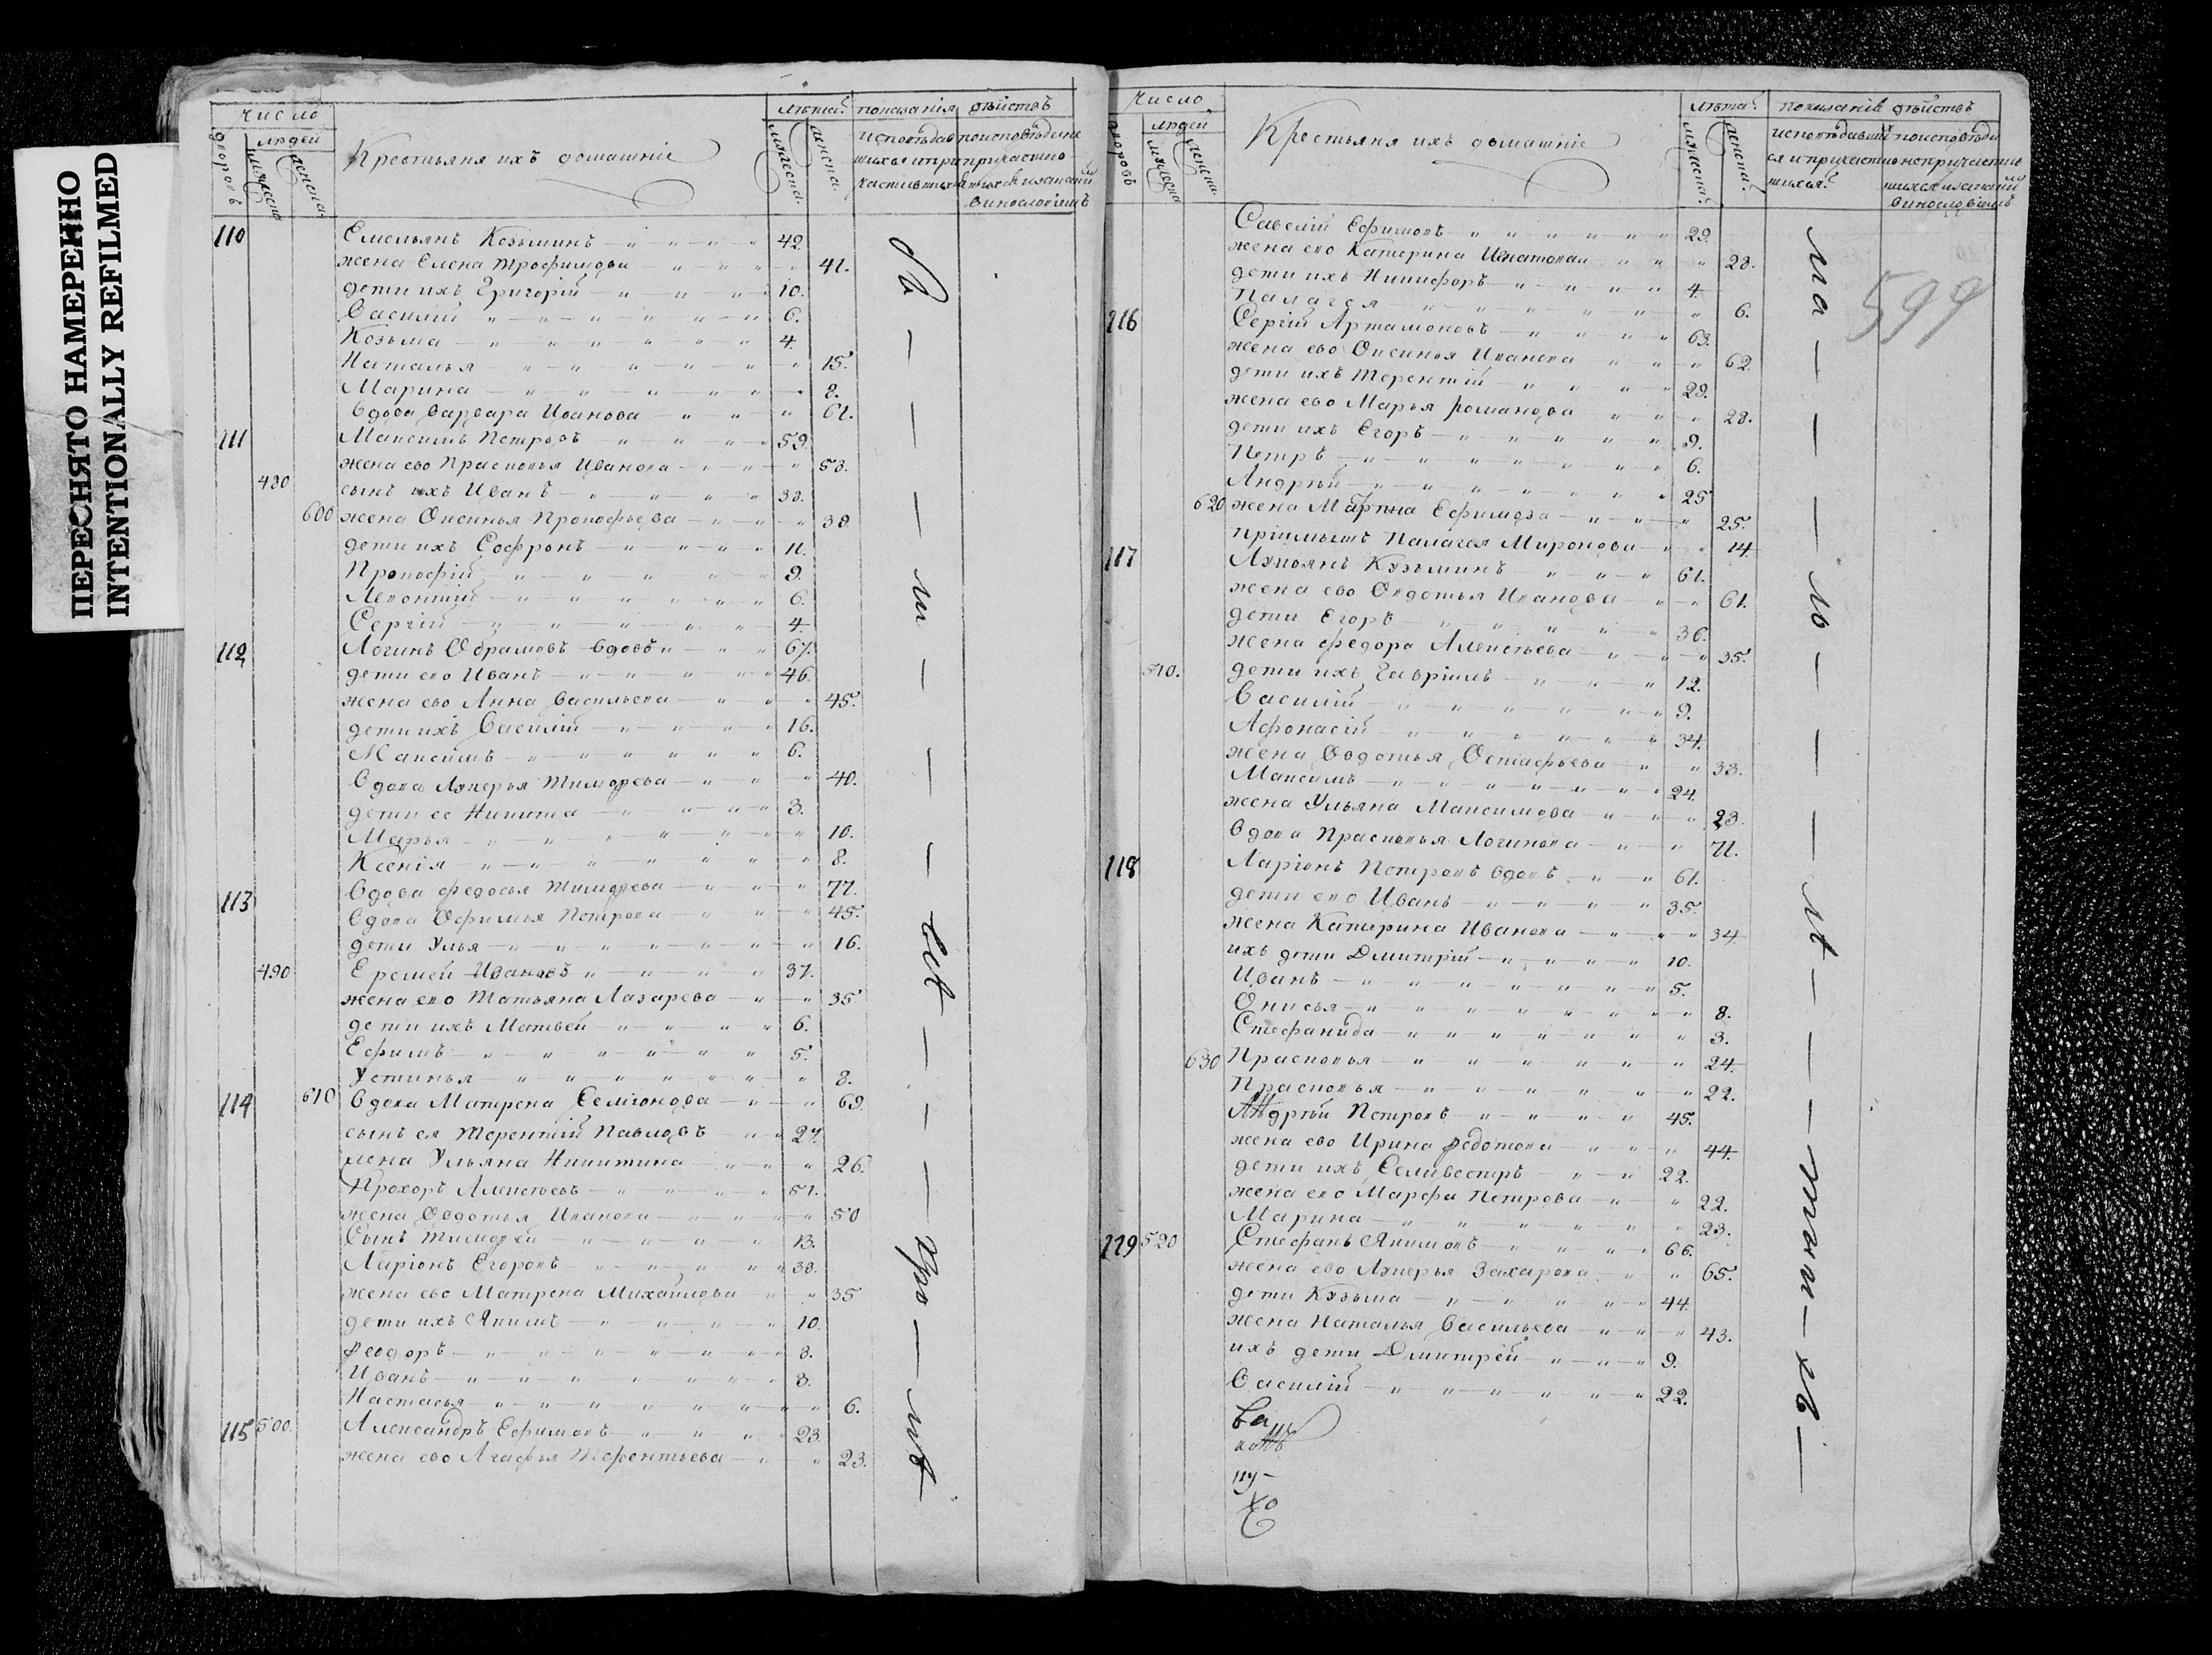 ПЕРЕСНЯТО НАМЕРЕННО
INTENTIONALLY REFILMED
число
людей
дворовъ
мужеска
женска
Крестьяня ихъ домашніе
лѣта
мужеска
женска
показанія дѣйствъ
110 Емельянъ Козьминъ 42.
жена Елена Трофимова 41.
дети ихъ Григорій 10.
Василій 6.
Козьма 4.
Наталья 15.
Марина 8.
вдова Варвара Иванова 61.
111 Максимъ Петровъ 59.
жена ево Прасковья Иванова 58.
480 сынъ ихъ Иванъ 38.
600 жена Оксинья Прокофьева 38
дети ихъ Софронъ 11.
Прокофій 9.
Леконтій 6.
Сергій 4.
112 Логинъ Обрамовъ вдовъ 67.
дети ево Иванъ 46.
жена ево Анна Васильева 45.
дети ихъ Василій 16.
Максимъ 6.
Вдова Лукерья Тимофеева 40.
дети ее Никита 3.
Марья 10.
Ксенія 8.
113 Вдова Федосья Тимофеева 77.
Вдова Офимья Петрова 45.
дети Улья 16.
490 Еремей Ивановъ 37.
жена ево Татьяна Лазарева 35
дети ихъ Матвей 6.
Ефимъ 5.
Устинья 8.
114 610 Вдова Матрена Семіонова 69
сынъ ея Терентій Павловъ 27.
жена Ульяна Никитина 26.
Прохоръ Алексѣевъ 51.
жена Овдотья Иванова 50
Сынъ Тимофей 13.
Ларіонъ Егоровъ 38.
жена ево Матрена Михайлова 35
дети ихъ Якимъ 10.
Федоръ 8.
Иванъ 3.
Настасья 6.
115 500. Александръ Ефимовъ 23.
жена ево Агафья Терентьева 23.
число
людей
дворовъ
мужеска
женска
Крестьяня ихъ домашніе
лѣта
мужеска
женска
показаніе дѣйствъ
599
Савелій Ефимовъ 29.
жена ево Катерина Игнатова 28.
дети ихъ Никифоръ 4.
Палагея 6.
116 Сергій Артамоновъ 63.
жена ево Оксинья Иванова 62.
дети ихъ Терентій 29.
жена ево Марья Романова 28.
дети ихъ Егоръ 9.
Петръ 6.
Андрѣй 25
620 жена Марина Ефимова 25.
Палагея Миронова 14.
117 Лукоянъ Кузьминъ 61.
жена ево Овдотья Иванова 61.
дети Егоръ 36.
жена Федора Алексѣева 35.
510. дети ихъ Гавріилъ 12.
Василій 9.
Афонасій 34.
жена Овдотья Остафьева 33.
Максимъ 24.
жена Ульяна Максимова 23.
Вдова Прасковья Логинова 71.
118 Ларіонъ Петровъ вдовъ 61.
дети ево Иванъ 35.
жена Катерина Иванова 34.
ихъ дети Дмитрій 10.
Иванъ 5.
Онисья 8.
Стефанида 3.
630 Прасковья 24.
Прасковья 22.
Андрѣй Петровъ 45.
жена ево Ирина Федотова 44.
дети ихъ Селивестръ 22.
жена ево Марфа Петрова 22.
Марина 23.
119 520 Стефанъ Якимовъ 66.
жена ево Лукерья Захарова 65.
дети Кузьма 44.
жена Наталья Васильева 43.
ихъ дети Дмитрей 9.
Василій 22.